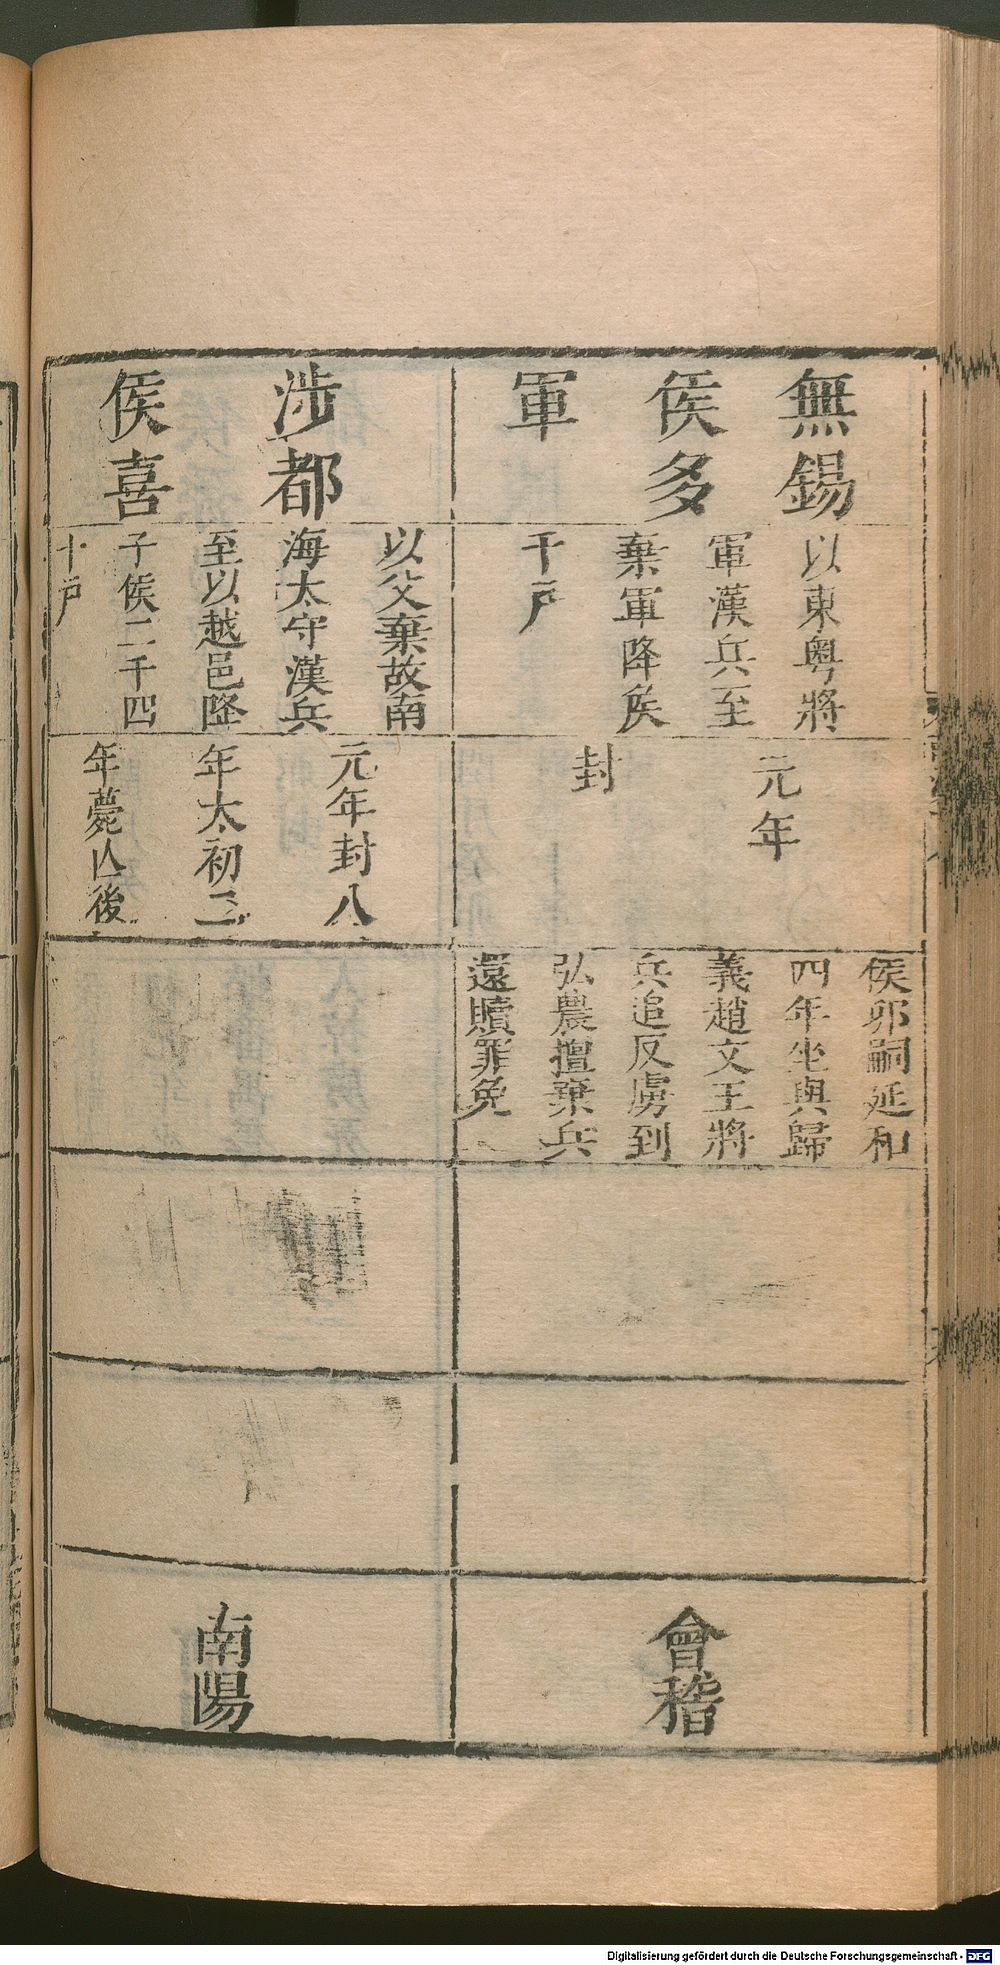 無錫
侯多
軍
以東粤將
軍漢兵至
棄軍降侯
千戸
元年
封
侯卯嗣延和
四年坐與歸
義趙文王將
兵追反虜到
弘農擅棄兵
還贖罪免
會稽
涉都
侯喜
以父棄故南
海太守漢兵
至以越邑降
子侯二千四
十戸
元年封八
年太初二
年薨亾後
南陽
Digitalisierung gefördert durch die Deutsche Forschungsgemeinschaft - DFG